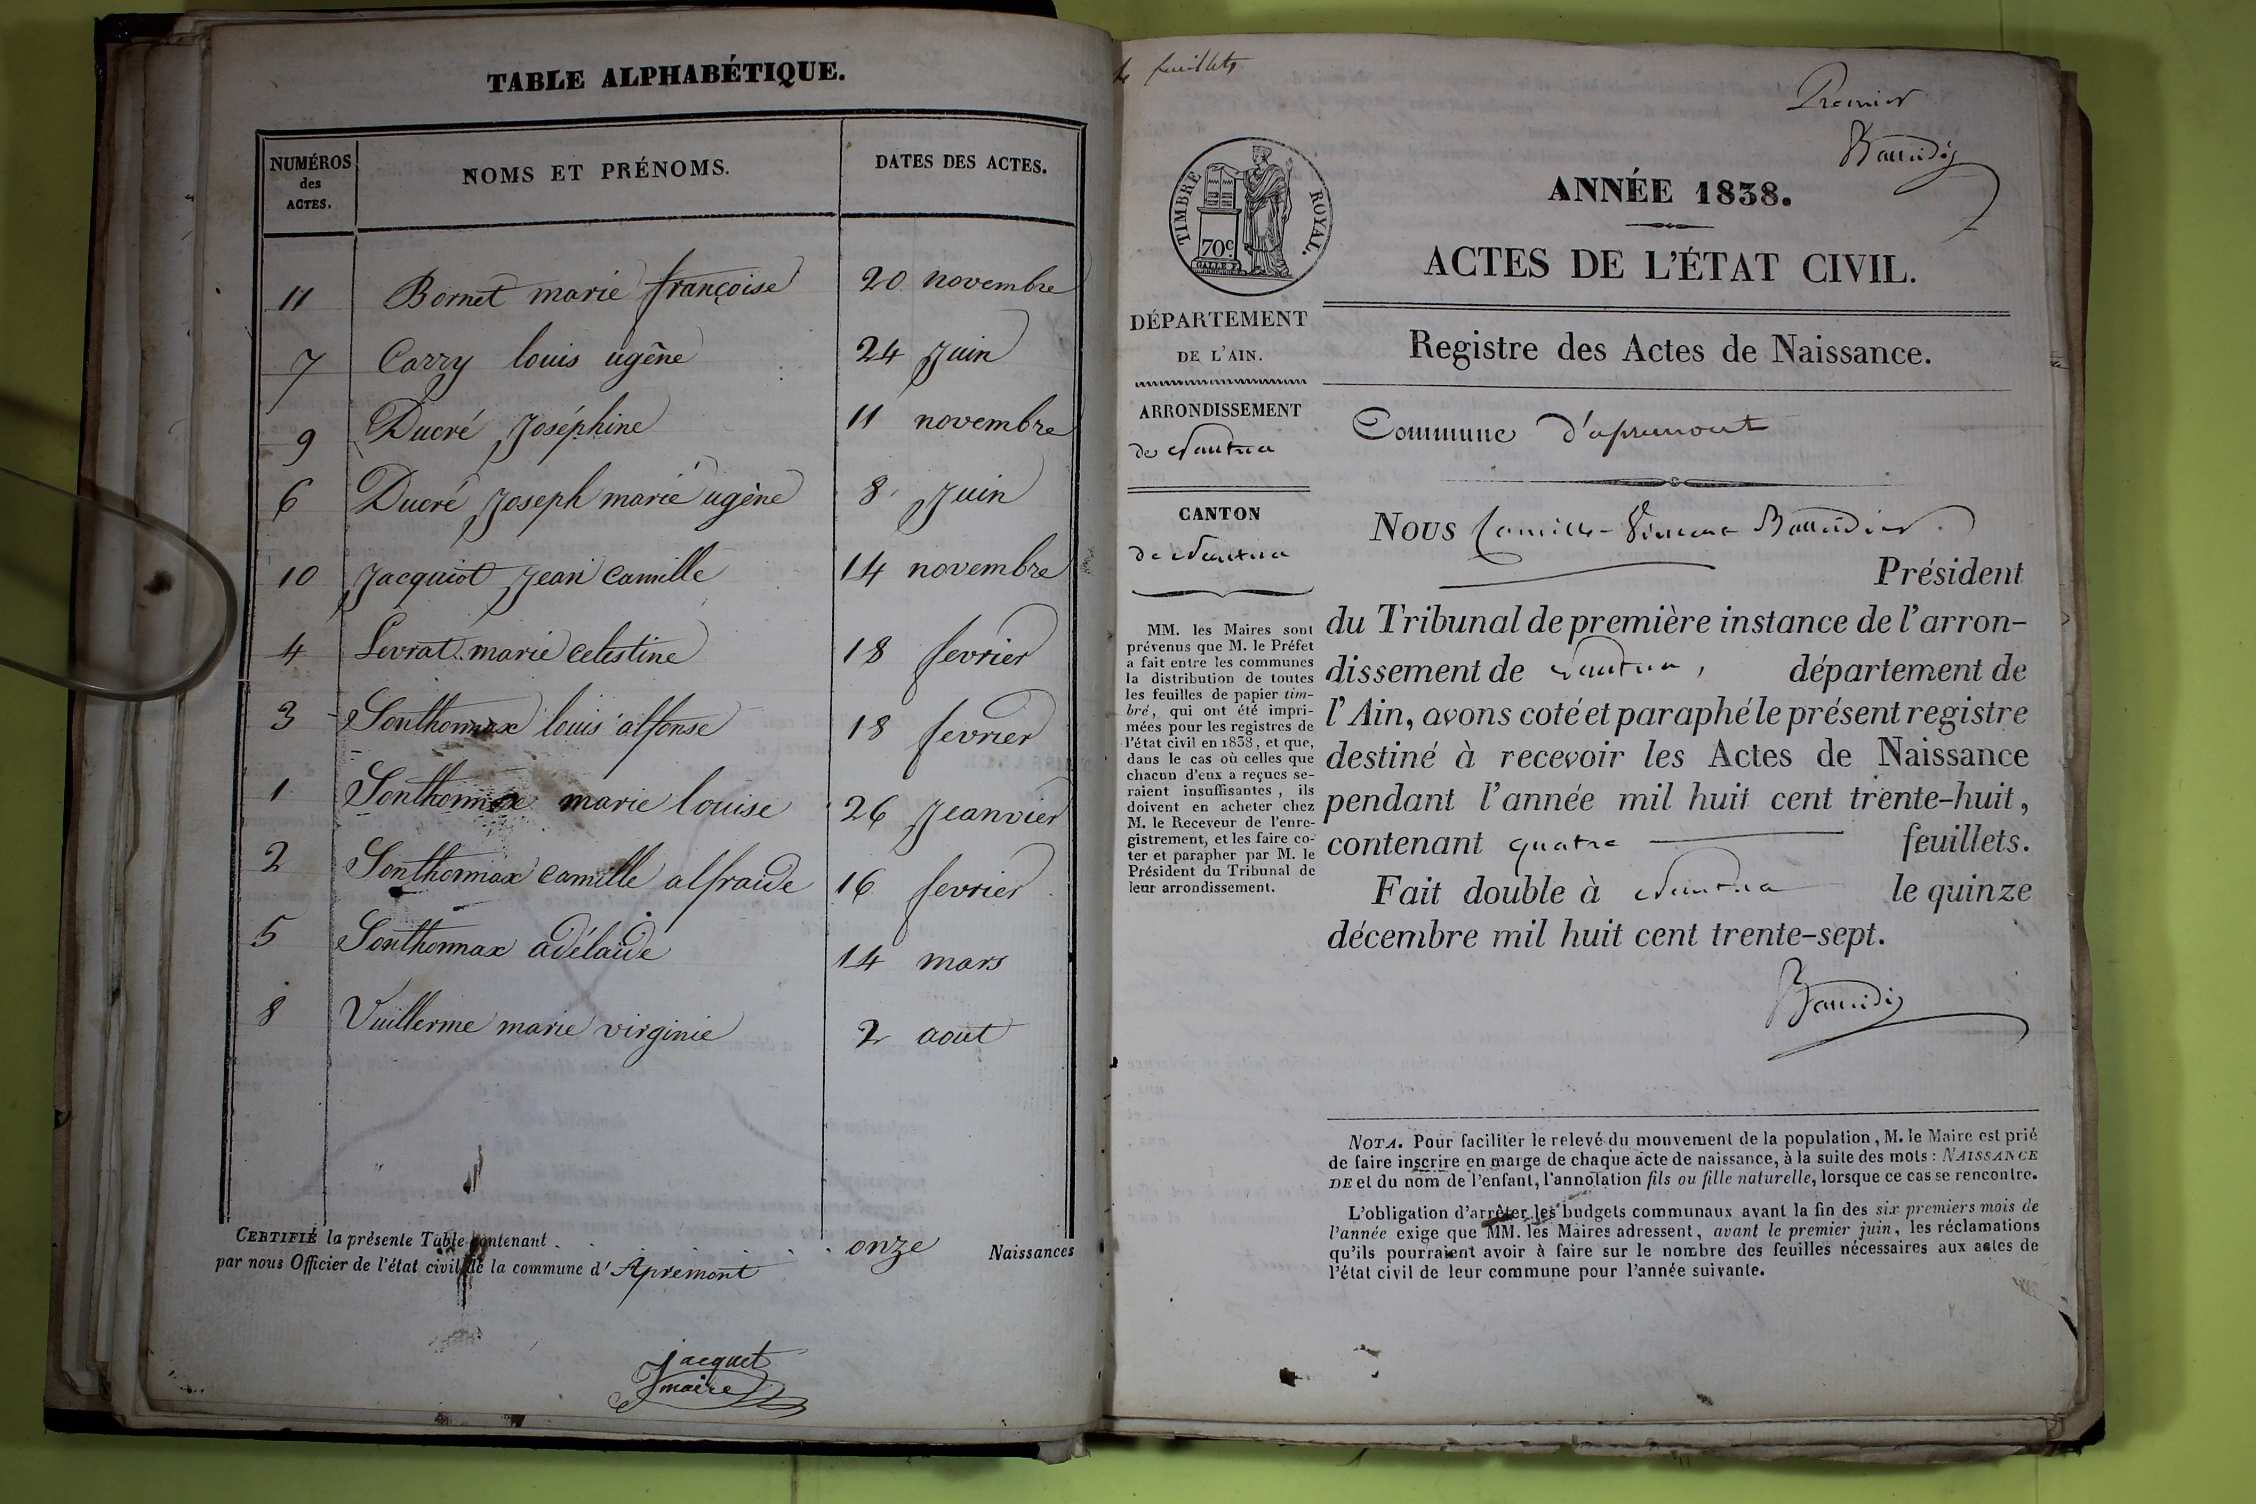 TABLE ALPHABÉTIQUE.
NUMÉROS des ACTES. NOMS ET PRÉNOMS. DATES DES ACTES.
11 Bornet marie françoise 20 novembre
7 Carry louis ugêne 24 Juin
9 Ducré Joséphine 11 novembre
6 Ducré Joseph marie ugène 8 Juin
10 Jacquiot Jean Camille 14 novembre
4 Levrat marie Celestine 18 fevrier
3 Sonthonnax louis alfonse 18 fevrier
1 Sonthonnax marie louise 26 Jeanvier
2 Sonthonnax camille alfraide 16 fevrier
5 Sonthonnax adélaide 14 mars
8 Vuillerme marie virginie 2 aout
CERTIFIÉ la présente Table contenant onze Naissances
par nous Officier de l'état civil de la commune d' Apremont
Jacquet
maire
feuillets
Premier
TIMBRE ROYAL.
70c.
ANNÉE 1838.
ACTES DE L'ÉTAT CIVIL.
Registre des Actes de Naissance.
DÉPARTEMENT
DE L'AIN.
ARRONDISSEMENT
de Nantua
CANTON
de Nantua
MM. les Maires sont
prévenus que M. le Préfet
a fait entre les communes
la distribution de toutes
les feuilles de papier tim-
bré, qui ont été impri-
mées pour les registres de
l'état civil en 1838, et que,
dans le cas où celles que
chacun d'eux a reçues se-
raient insuffisantes, ils
doivent en acheter chez
M. le Receveur de l'enre-
gistrement, et les faire co-
ter et parapher par M. le
Président du Tribunal de
leur arrondissement.
Commune d'apremont
Nous Camille-Vincent
Président
du Tribunal de première instance de l'arron-
dissement de Nantua, département de
l'Ain, avons coté et paraphé le présent registre
destiné à recevoir les Actes de Naissance
pendant l'année mil huit cent trente-huit,
contenant quatre feuillets.
Fait double à Nantua le quinze
décembre mil huit cent trente-sept.
NOTA. Pour faciliter le relevé du mouvement de la population, M. le Maire est prié
de faire inscrire en marge de chaque acte de naissance, à la suite des mots : NAISSANCE
DE et du nom de l'enfant, l'annotation fils ou fille naturelle, lorsque ce cas se rencontre.
L'obligation d'arrêter les budgets communaux avant la fin des six premiers mois de
l'année exige que MM. les Maires adressent, avant le premier juin, les réclamations
qu'ils pourraient avoir à faire sur le nombre des feuilles nécessaires aux actes de
l'état civil de leur commune pour l'année suivante.